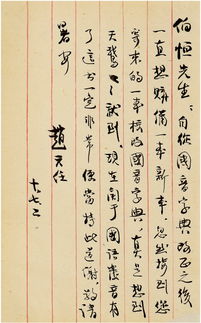 伯恒先生：自從國音字典改正之後
一直想購備一本新本，忽然接到您
寄來的一本校改國音字典，真是想到
天鵝了就到，現在關于國語發音有
了這書一定非常便當特此道謝，敬請
暑安
趙元任
十、七、二